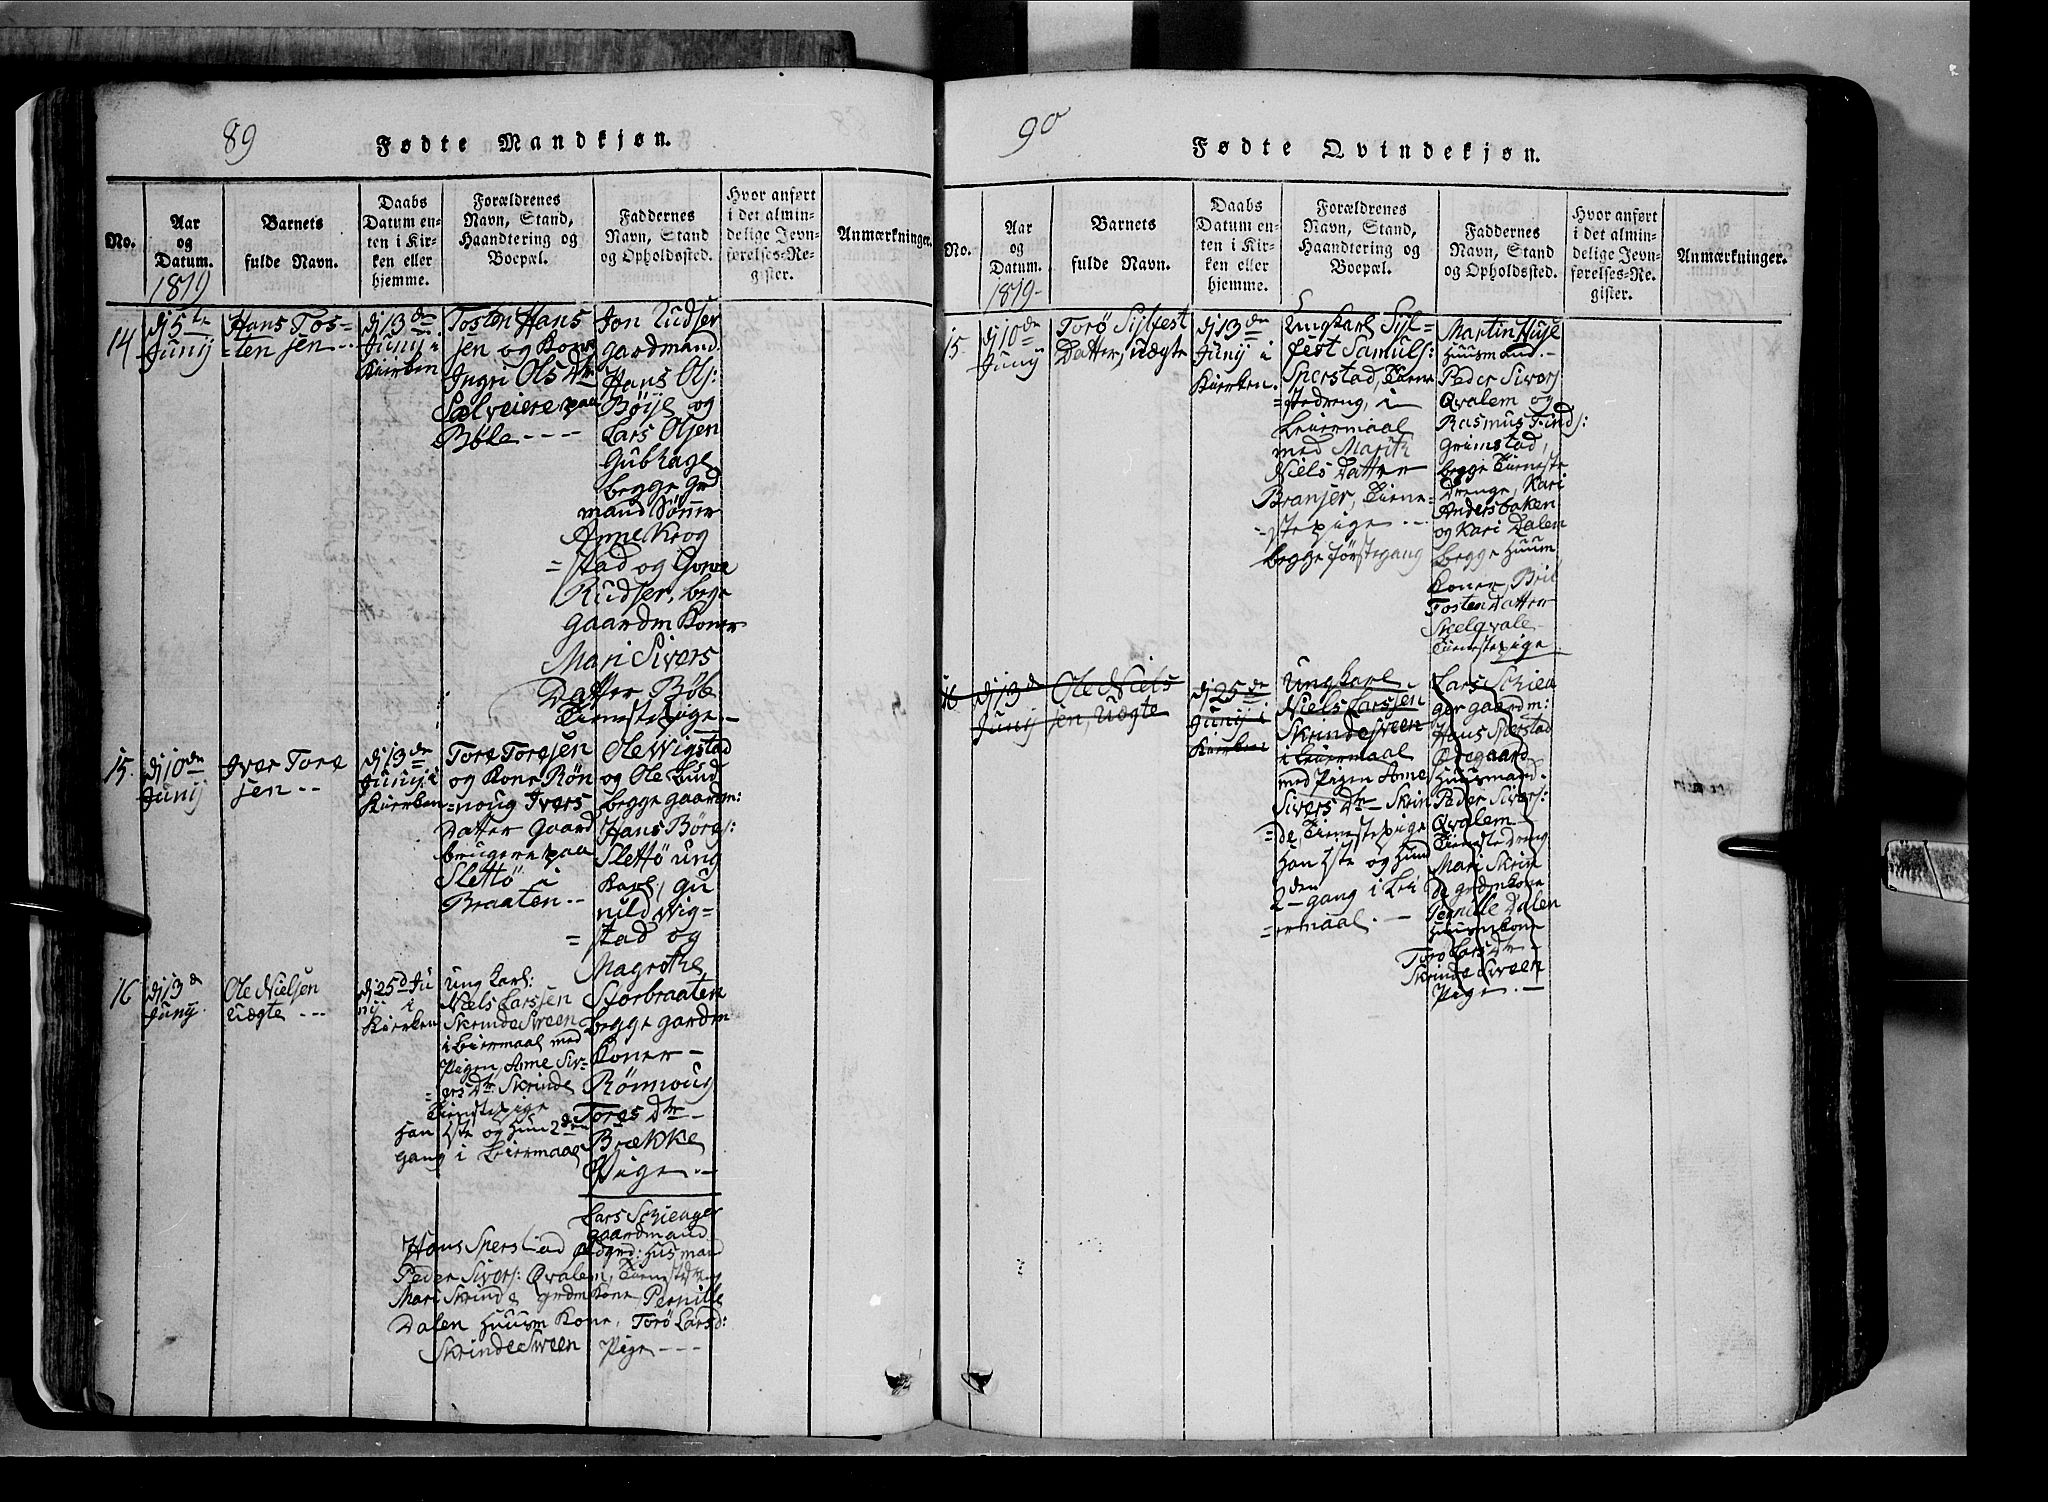 89
Fødte Mandkjøn.
No.
Aar
og
Datum.
1819
Barnets
fulde Navn.
Daabs
Datum en-
ten i Kir-
ken eller
hjemme.
Forældrenes
Navn, Stand,
Haandtering og
Boepæl.
Faddernes
Navn, Stand
og Opholdssted.
Hvor anført
i det almin-
delige Jevn-
førelses-Re-
gister.
Anmærkninger.
14
dj 5te
Junij
Hans Tos-
ten sen --
dj 13de
Junij i
Kierken
Tosten Hans
sen og Kone
Ingri Ols Dtr
Sælveiere paa
Bøle ----
Jon Rudser
gardmand.
Hans Ols:
Böye og
Lars Olsen
Gubhage
begge grd
mand Sønner
Anne Krog
=stad og
Rudser, bege
gaardm Koner
Mari Sivers
Datter Böle
Tienestepige.-
15.
dj 10de
Junij
Iver Tore
sen --
dj 13de
Junij i
Kierken
Tore Toresen
og Kone Rön
=noug Ivers
Datter gaard
brugere paa
Slettö i
Braaten --
Ole Wigstad
og Ole Lund
begge gaardm:
Hans Böres:
Slettö ung
Karl, gu
nild Wig=
=stad og
Magrethe
Storbraaten
begge gardm
Koner -
Rönnoug
Tores Dtr -
Brække
Pige --
16
dj 13d
Junij.
Ole Nielsen
Uægte ---
dj 25d Ju
nij i
Kierken
Ung Karl:
Niels Larssen
Skrinde Sveen
i Leiermaal med
Pigen Anne Siv-
=ers Dtr Skrinde
Tienstepige
Han 1ste og Hun 2den
gang i Leiermaal
Lars Schienger
gaardmand
Hans Sperstad Ødgrd: Husmand
Peder Sivers: Qvalem, Tienestedreng
Mari Skrinde grdmKone Pernille
Dalen Huusm Kone, Torö Larsd:
Skrinde Sveen Pige ---
90
Fødte Qvindekjøn.
No.
Aar
og
Datum.
1819-
Barnets
fulde Navn.
Daabs
Datum en-
ten i Kir-
ken eller
hjemme.
Forældrenes
Navn, Stand,
Haandtering og
Boepæl.
Faddernes
Navn, Stand
og Opholdssted.
Hvor anført
i det almin-
delige Jevn-
førelses-Re-
gister.
Anmærkninger.
15
dj 10de
Junij
Torö Sylfest
Datter, uægte
dj 13de
Junij i
Kierken.
Ungkarl Syl=
fest Samuls:
Sperstad, Tiene
=stedreng, i
Leiermaal
med Marith
Niels Datter
Branser, Tiene=
=stepige ---
begge förstegang
Martin
Huusmand --
Peder Sivers
Qvalem og
Rasmus Find:
Grimstad,
begge Tieneste
Drenge, Kari
Andersbaken
og Kari Dalen
begge Huusm
Koner, Brit
Tosten Datter
Skelqvale-
Tienestepige
16
dj 13d
Junij
Ole Niels
sen, Uægte
dj 25de
Junij i
Kierken
Ungkarl
Niels Larssen
Skrinde Sveen
i Leiermaal
med Pigen Anne
Sivers Dtr Skrin
=de, Tienestepige
Han 1ste og Hun
2den gang i Lei
=ermaal. -
Lars Schien
ger gaardm:
Hans Sperstad
Ødegaard
Huusmand.
Peder Sivers:
Qvalem -
Tieneste dreng
Mari Skrin
de grdmkone
Pernille Dalen
Huusmkone
Torö Lars Dtr -
Skrinde Sveen
Pige. -